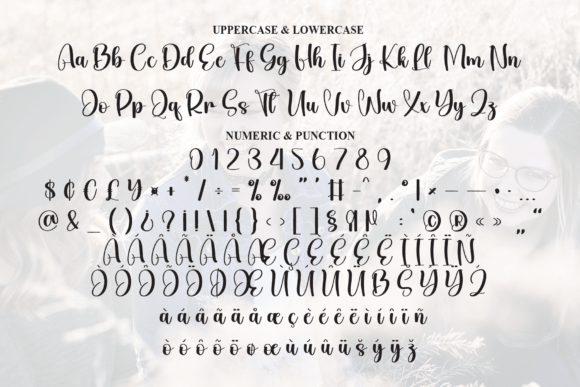 UPPERCASE & LOWERCASE
Aa Bb Cc Dd Ee Ff Gg Hh Ii Jj Kk Ll Mm Nn
Oo Pp Qq Rr Ss Tt Uu Vv Ww Xx Yy Zz
NUMERIC & PUNCTION
0 1 2 3 4 5 6 7 8 9
$ ¢ € £ ¥ ¤ + * / ÷ = % ‰ " ' # - ^ , . ° | × – — • · …
@ & _ ( ) ¿ ? ¡ ! | \ | { } ‹ › [ ] § ¶ : ` © ® « » „ “
À Á Â Ã Ä Å Æ Ç È É Ê Ë Ì Í Î Ï Ñ
Ò Ó Ô Õ Ö Ø Œ Ù Ú Û Ü ß Š Ý Ÿ Ž
à á â ã ä å æ ç è é ê ë ì í î ï ñ
ò ó ô õ ö ø œ ù ú û ü š ý ÿ ž